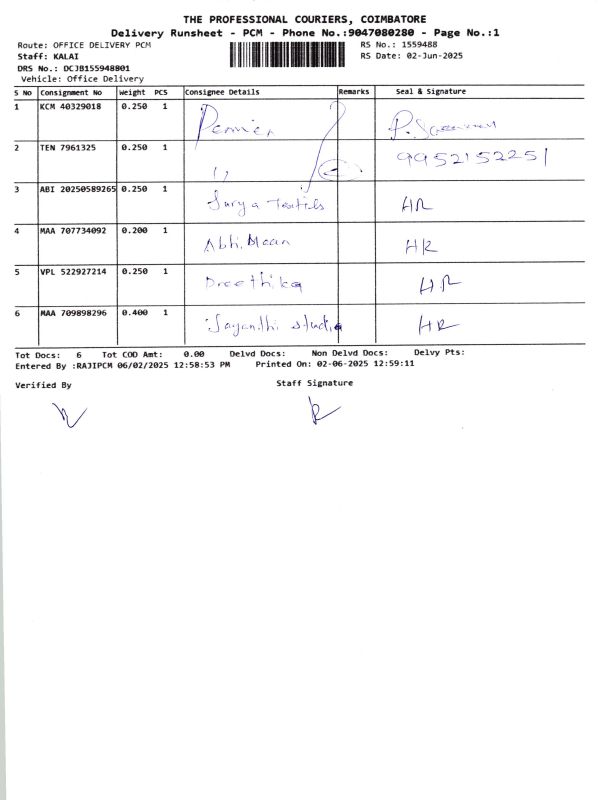 THE PROFESSIONAL COURIERS, COIMBATORE
Delivery Runsheet - PCM - Phone No.:9047080280 - Page No.:1
Route: OFFICE DELIVERY PCM RS No.: 1559488
Staff: KALAI RS Date: 02-Jun-2025
DRS No.: DCJB155948801
Vehicle: Office Delivery
S No Consignment No Weight PCS Consignee Details Remarks Seal & Signature
1 KCM 40329018 0.250 1
2 TEN 7961325 0.250 1 " 9952152251
3 ABI 20250589265 0.250 1 Surya Textils HR
4 MAA 707734092 0.200 1 Abhi Maan HR
5 VPL 522927214 0.250 1 Preethika HR
6 MAA 709898296 0.400 1 Jayanthi studio HR
Tot Docs: 6 Tot COD Amt: 0.00 Delvd Docs: Non Delvd Docs: Delvy Pts:
Entered By :RAJIPCM 06/02/2025 12:58:53 PM Printed On: 02-06-2025 12:59:11
Verified By Staff Signature